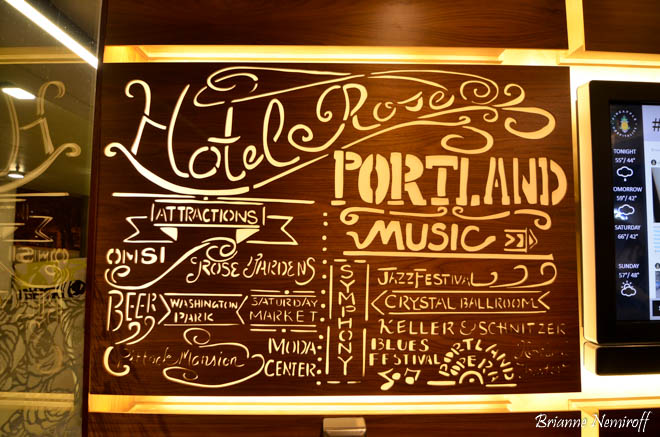 Hotel Rose
PORTLAND
ATTRACTIONS
OMSI
ROSE GARDENS
BEER
WASHINGTON
PARK
SATURDAY
MARKET
Pittock Mansion
MODA
CENTER
MUSIC
SYMPHONY
JAZZ FESTIVAL
CRYSTAL BALLROOM
KELLER & SCHNITZER
BLUES
FESTIVAL
PORTLAND
OPERA
#
TONIGHT
55°/ 44°
TOMORROW
59°/ 42°
SATURDAY
66°/ 42°
SUNDAY
57°/ 48°
Brianne Nemiroff